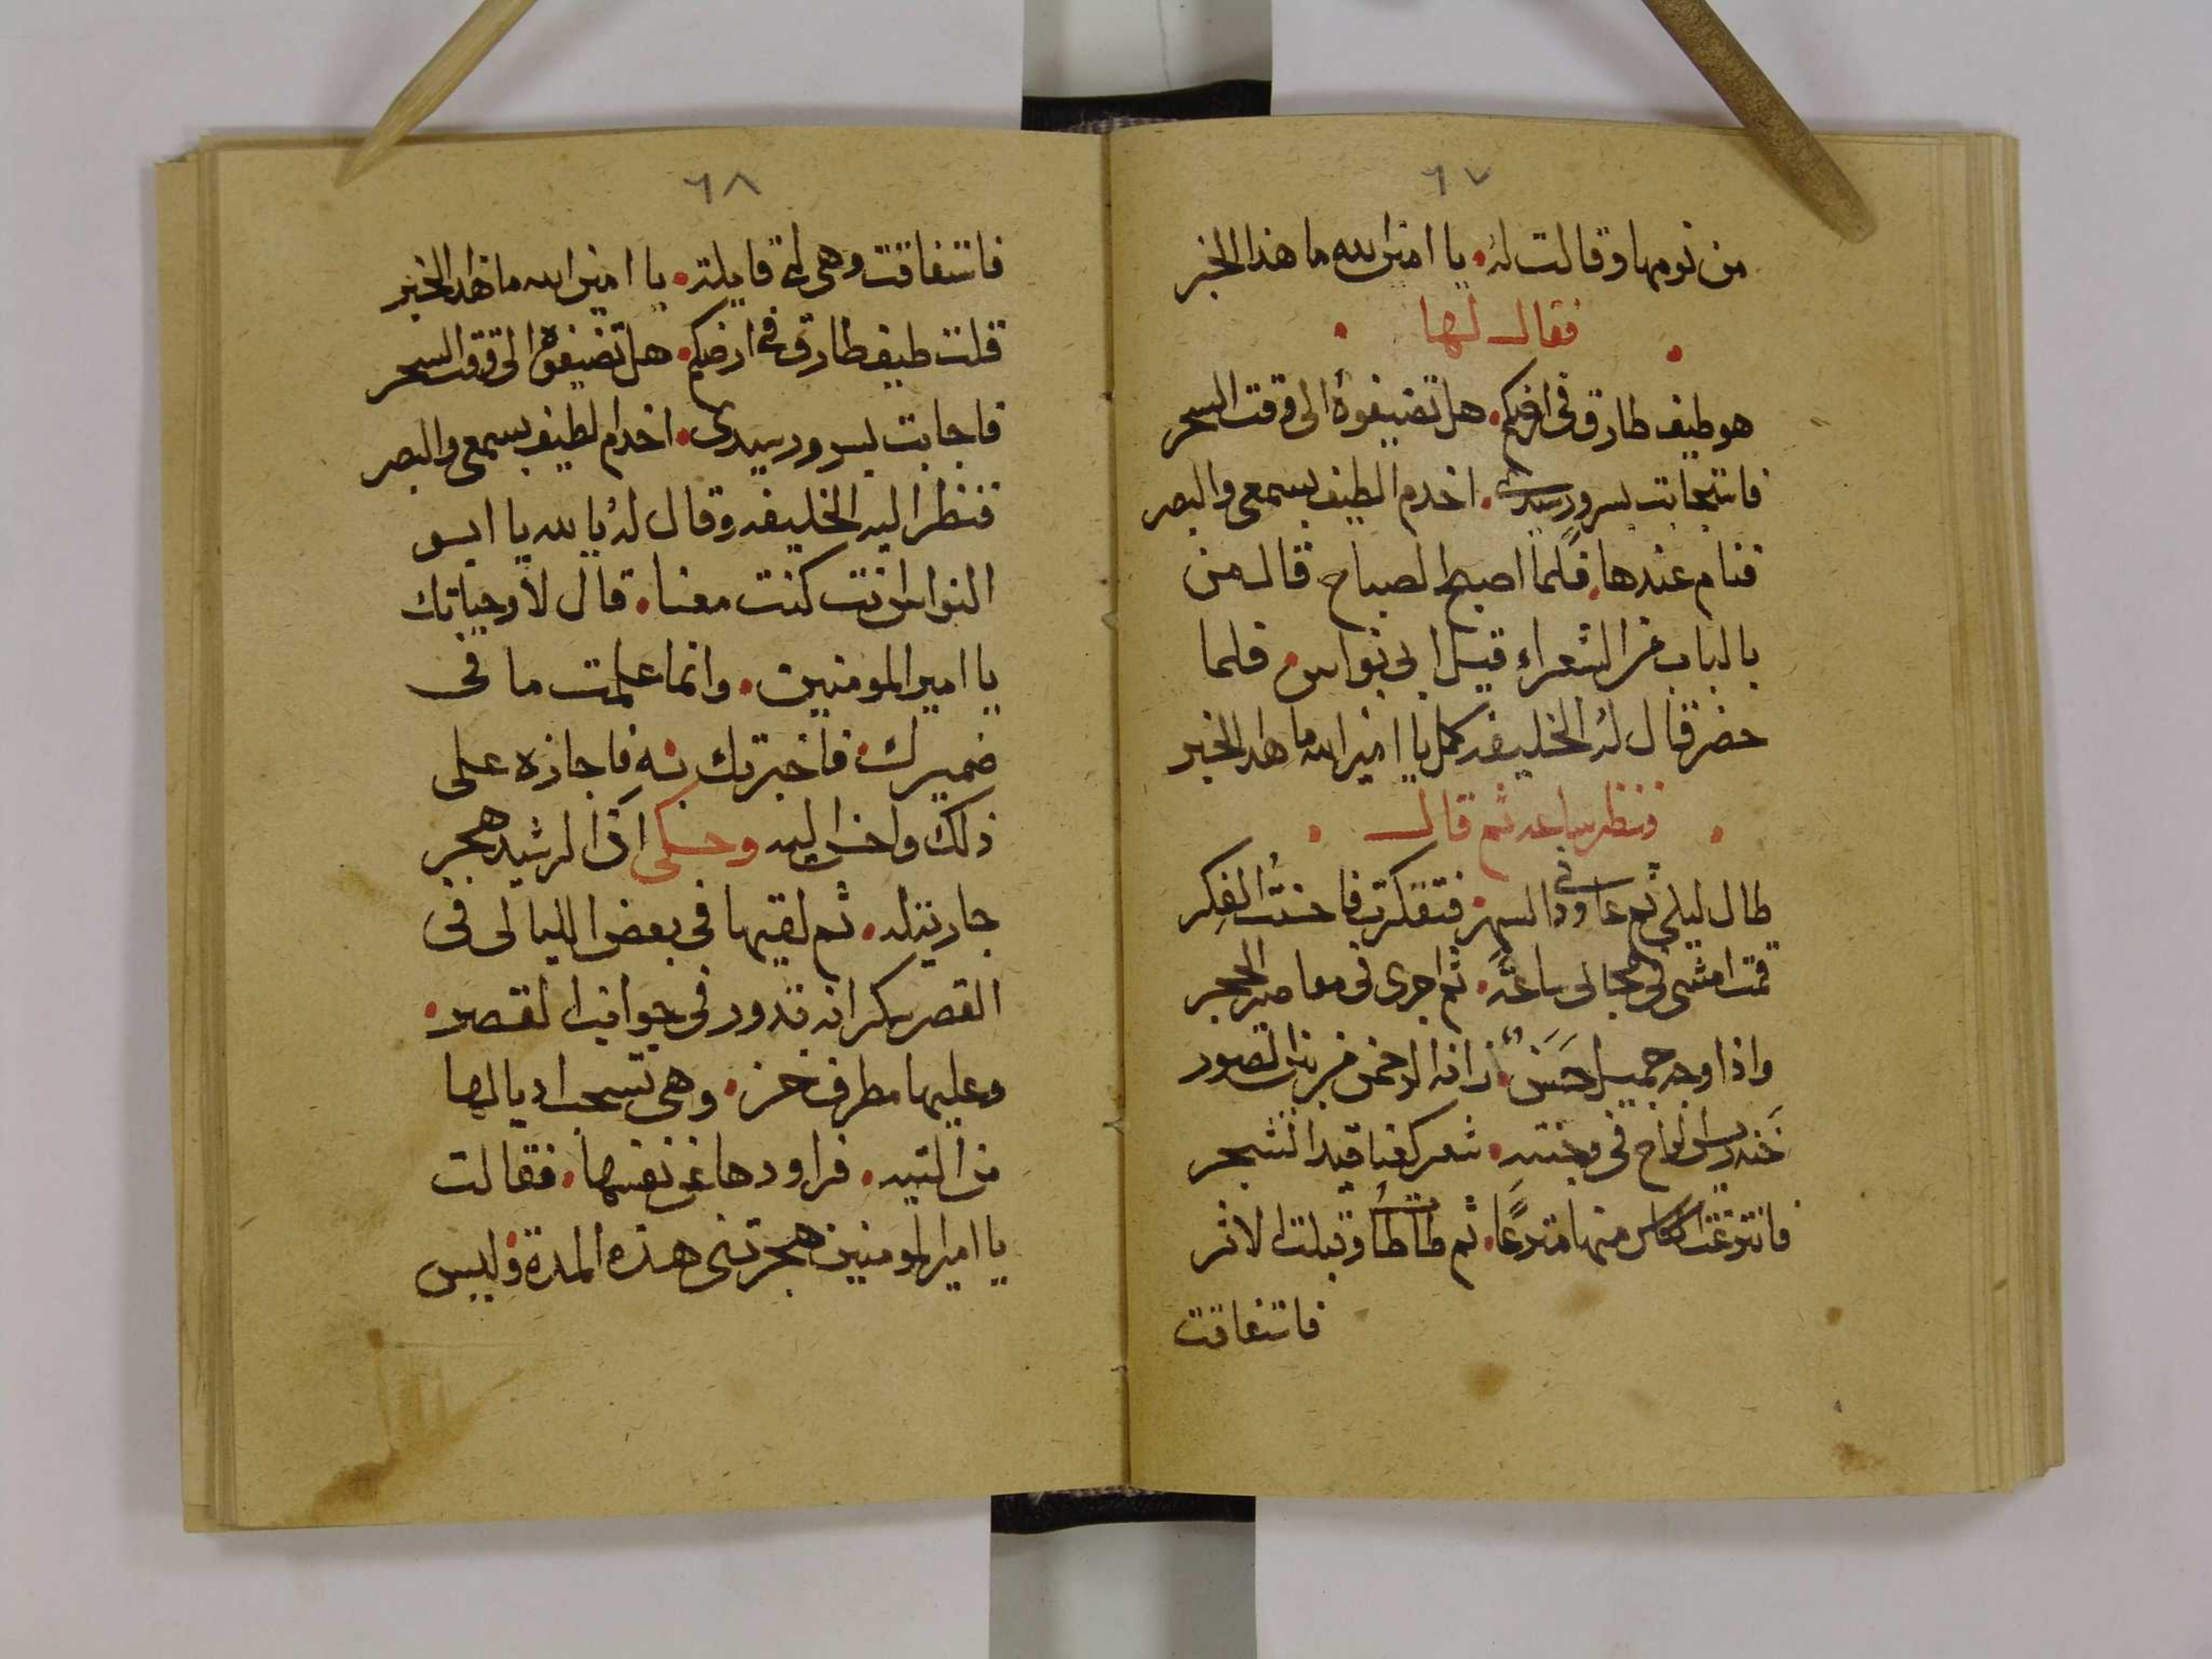 ٦٧
من نومها وقالت له • يا امين الله ما هذا الخبر
فقال لها
هو طيف طارق فى ارضكم • هل تضيفوه الى وقت السحر
فاستجابت بسرور سيدى • اخدم الطيف بسمعى والبصر
فنام عندها • فلما اصبح الصباح قال من
بالباب من الشعراء قيل ابى نواس • فلما
حضر قال له الخليفه كمل يا امين الله ما هذا الخبر
فنظر ساعه ثم قال
طال ليلى ثم عاودنى السهر • فتفكرت فاحسنت الفكر
قمت امشى فى مجالى ساعةً • ثم اجرى فى مقاصير الحجر
واذا وجه جميل حسن • زانه الرحمن من بين الصور
فى وجنته • شعر كعناقيد الشجر
منها • ثم طاطأ وقبلت الاثر
فاستفاقت
٦٨
فاستفاقت وهى لى قايلة • يا امين الله ما هذا الخبر
قلت طيف طارق فى ارضكم • هل تضيفوه الى وقت السحر
فاجابت بسرور سيدى • اخدم لطيف بسمعى والبصر
فنظر اليه الخليفه وقال له يا لله يا ابو
النواس انت كنت معنا • قال لا وحياتك
يا امير المومنين • وانما علمت ما فى
ضميرك • فاخبرتك به فاجازه على
ذلك واحسن اليه وحكى ان الرشيد هجر
جارية له • ثم لقيها فى بعض الليالى فى
القصر سكرانه تدور فى جوانب القصر •
وعليها مطرف خز • وهى تسحب اديالها
من التيه • فراودها عن نفسها • فقالت
يا امير المومنين هجرتنى هذه المدة وليس